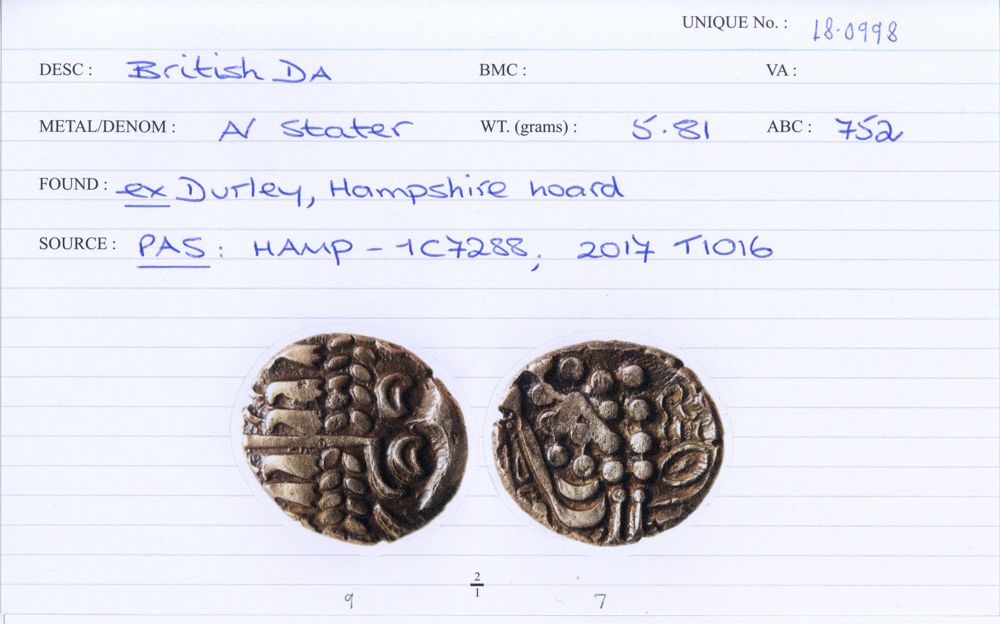 UNIQUE No. : 18.0998
DESC : British DA BMC : VA :
METAL/DENOM : AV Stater WT. (grams) : 5.81 ABC : 752
FOUND : ex Durley, Hampshire hoard
SOURCE : PAS : HAMP - 1C7288; 2017 T1016
2
1
9 7